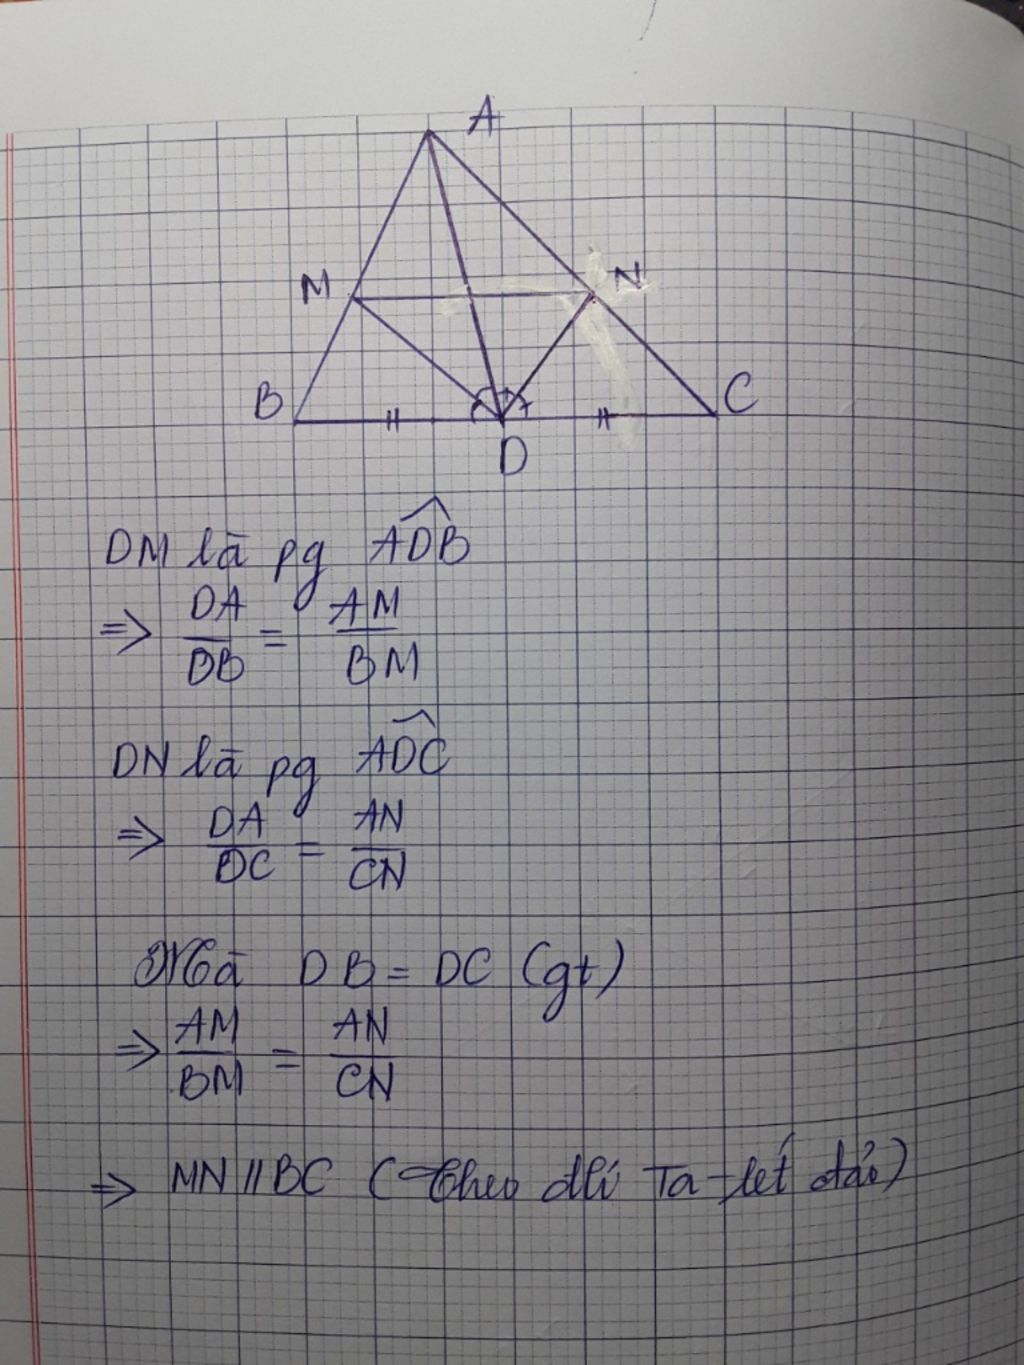 A
M N
B C
D
DM là pg ADB
=> DA/DB = AM/BM
DN là pg ADC
=> DA/DC = AN/CN
Mà DB = DC (gt)
=> AM/BM = AN/CN
=> MN // BC (Theo đlí Ta-lét đảo)